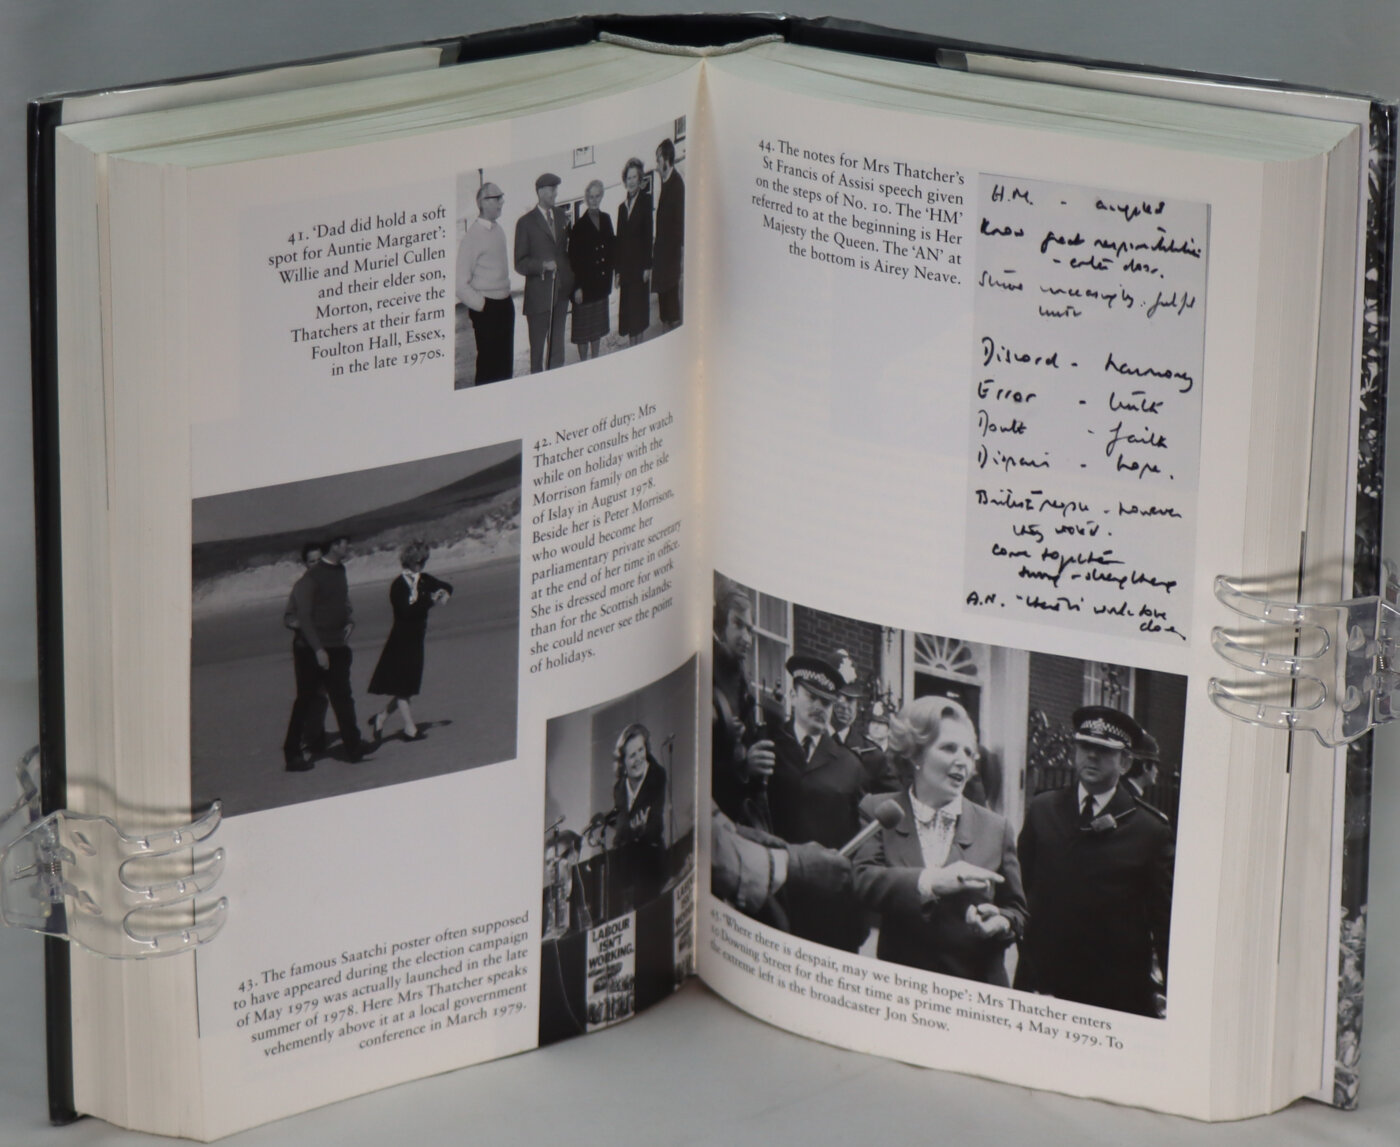 41. ‘Dad did hold a soft
spot for Auntie Margaret’:
Willie and Muriel Cullen
and their elder son,
Morton, receive the
Thatchers at their farm
Foulton Hall, Essex,
in the late 1970s.
42. Never off duty: Mrs
Thatcher consults her watch
while on holiday with the
Morrison family on the isle
of Islay in August 1978.
Beside her is Peter Morrison,
who would become her
parliamentary private secretary
at the end of her time in office.
She is dressed more for work
than for the Scottish islands:
she could never see the point
of holidays.
43. The famous Saatchi poster often supposed
to have appeared during the election campaign
of May 1979 was actually launched in the late
summer of 1978. Here Mrs Thatcher speaks
vehemently above it at a local government
conference in March 1979.
LABOUR
ISN'T
WORKING.
44. The notes for Mrs Thatcher’s
St Francis of Assisi speech given
on the steps of No. 10. The ‘HM’
referred to at the beginning is Her
Majesty the Queen. The ‘AN’ at
the bottom is Airey Neave.
H.M. - accepted
Know great responsibilities
Strive unceasingly
Discord - harmony
Error - truth
Doubt - faith
Despair - hope.
British people - however
they voted.
come together
A.N. -
45. ‘Where there is despair, may we bring hope’: Mrs Thatcher enters
10 Downing Street for the first time as prime minister, 4 May 1979. To
the extreme left is the broadcaster Jon Snow.